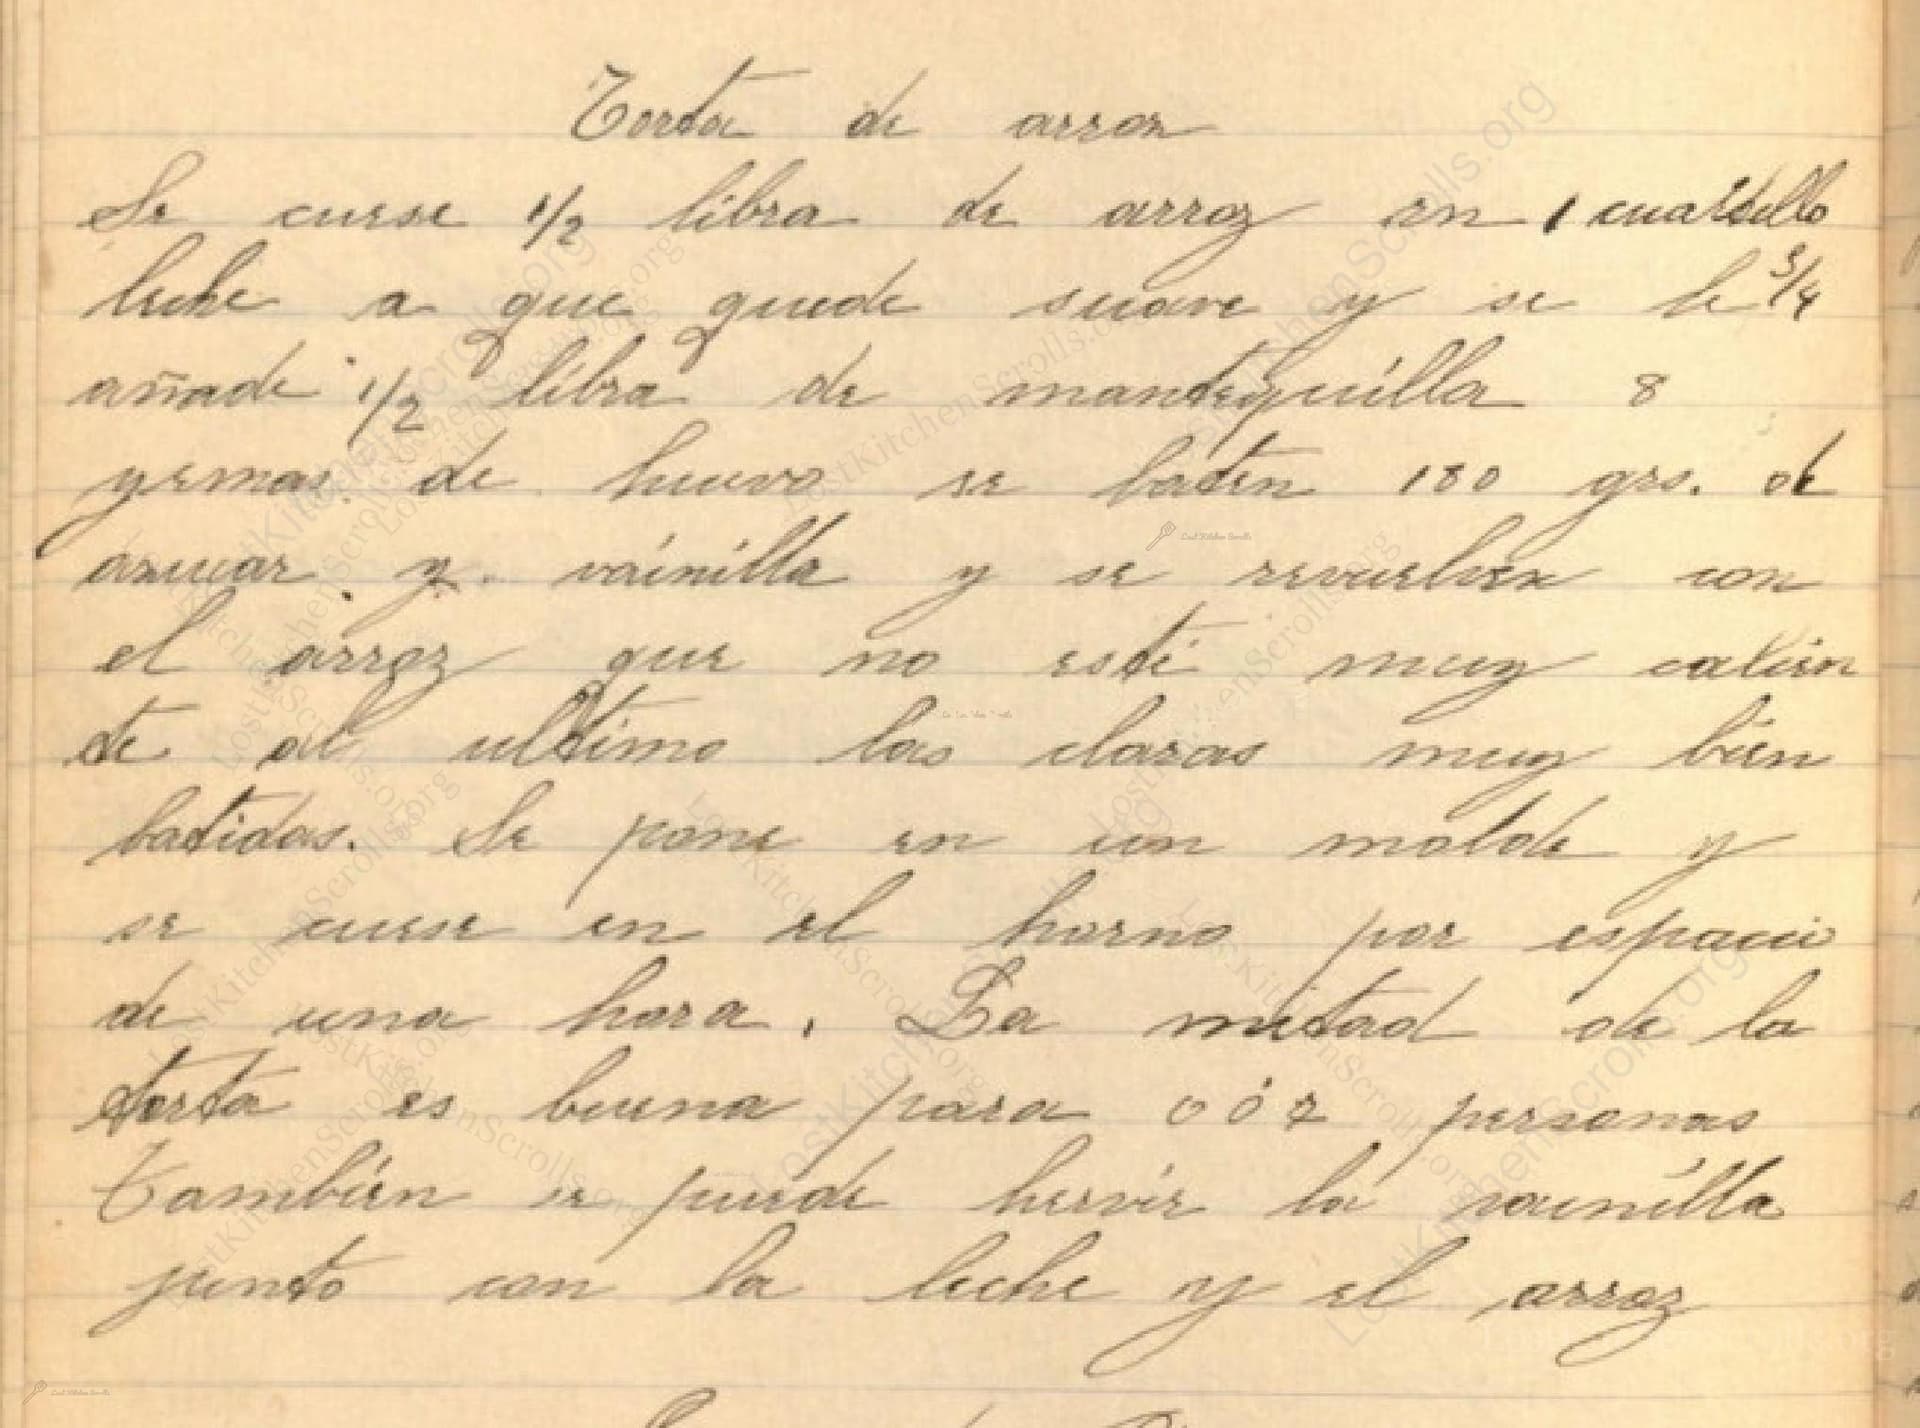 Torta de arroz
Se cuese 1/2 libra de arroz en 1 cuartillo
leche a que quede suave y se le 3/4
añade 1/2 libra de mantequilla 8
yemas de huevo se baten 180 grs. de
azucar y vainilla y se revuelven con
el arroz que no esté muy calien
te al ultimo las claras muy bien
batidas. Se pone en un molde y
se cuese en el horno por espacio
de una hora. La mitad de la
torta es buena para personas
También se puede hervir la vainilla
junto con la leche y el arroz